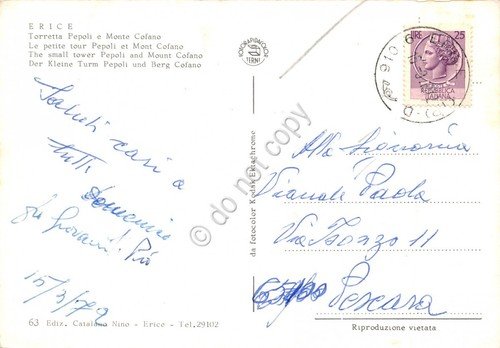 ERICE
Torretta Pepoli e Monte Cofano
Le petite tour Pepoli et Mont Cofano
The small tower Pepoli and Mount Cofano
Der Kleine Turm Pepoli und Berg Cofano
TERNI
LIRE 25
REPUBBLICA
ITALIANA
910
Saluti cari a
tutti
Domenico
Giovanni Pió
15/3/
Alla Signorina
Paola
Via Isonzo 11
65100
Pescara
do not copy
da fotocolor Kodak Ektachrome
63 Ediz. Catalano Nino - Erice - Tel. 29102
Riproduzione vietata